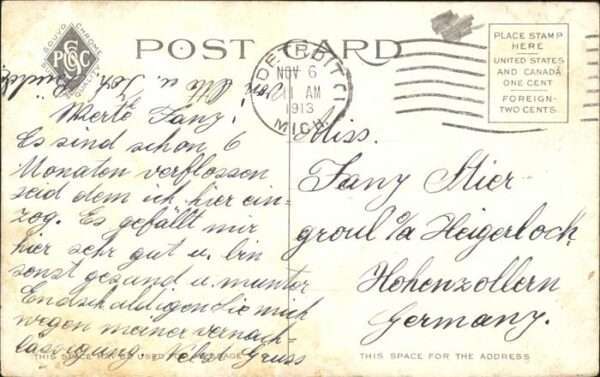 SOUVO CHROME
PCSC
POST CARD
DETROIT
NOV 6
11 AM
1913
MICH.
PLACE STAMP
HERE
UNITED STATES
AND CANADA
ONE CENT
FOREIGN-
TWO CENTS
von u. Joh.
Werte Fany!
Es sind schon 6
Monaten verflossen
seid dem ich hier ein-
zog. Es gefällt mir
hier sehr gut u. bin
sonst gesund u. munter
Endschuldigen Sie mich
wegen meiner vernach-
lässigung. Nebst Gruss
Miss.
Fany Stier
groul o/a Heigerloch
Hohenzollern
Germany.
THIS SPACE
THIS SPACE FOR THE ADDRESS